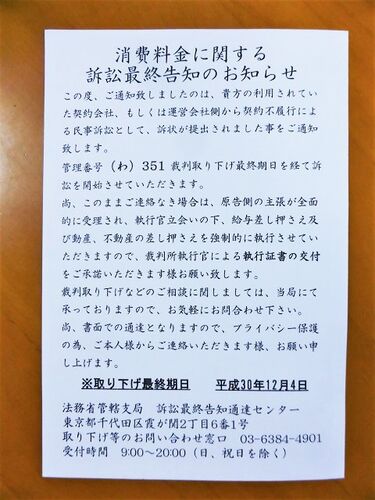 消費料金に関する
訴訟最終告知のお知らせ
この度、ご通知致しましたのは、貴方の利用されてい
た契約会社、もしくは運営会社側から契約不履行によ
る民事訴訟として、訴状が提出されました事をご通知
致します。
管理番号（わ）351 裁判取り下げ最終期日を経て訴
訟を開始させていただきます。
尚、このままご連絡なき場合は、原告側の主張が全面
的に受理され、執行官立会いの下、給与差し押さえ及
び動産、不動産の差し押さえを強制的に執行させてい
ただきますので、裁判所執行官による執行証書の交付
をご承諾いただきます様お願い致します。
裁判取り下げなどのご相談に関しましては、当局にて
承っておりますので、お気軽にお問合わせ下さい。
尚、書面での通達となりますので、プライバシー保護
の為、ご本人様からご連絡いただきます様、お願い申
し上げます。
※取り下げ最終期日　平成30年12月4日
法務省管轄支局　訴訟最終告知通達センター
東京都千代田区霞が関2丁目6番1号
取り下げ等のお問い合わせ窓口　03-6384-4901
受付時間　9:00～20:00（日、祝日を除く）